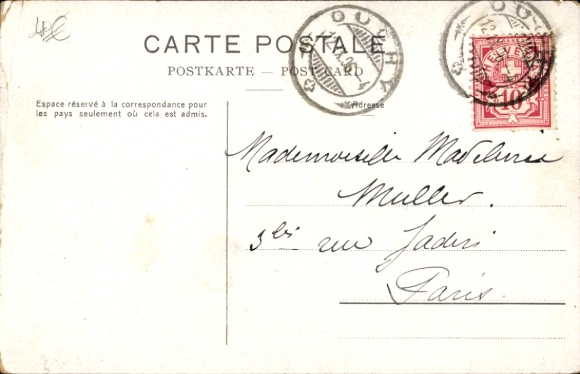 4€
CARTE POSTALE
POSTKARTE — POST CARD
OUCHY
OUCHY
HELVETIA
10
Espace réservé à la correspondance pour
les pays seulement où cela est admis.
Adresse
Mademoiselle Madeleine
Muller.
3bis rue Jadin
Paris.